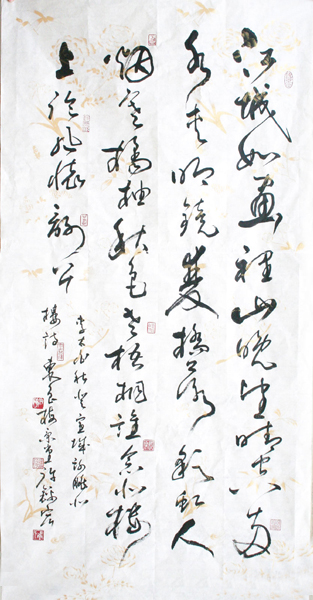 江城如画里山晚望晴空两
水夹明镜双桥落彩虹人
烟寒橘柚秋色老梧桐谁念北楼
上临风怀谢公
李太白秋登宣城谢朓北
楼诗